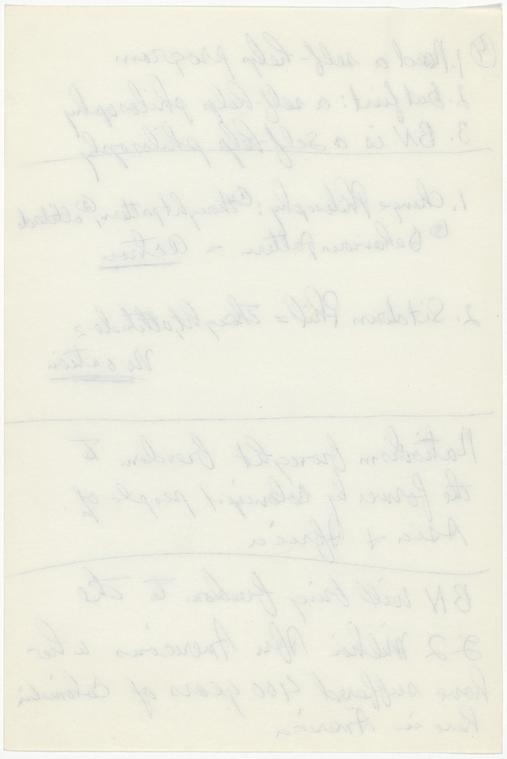 ④ 1. Need a self-help program
2. But first: a self help philosophy
3. BN is a self help philosophy
1. Change Philosophy: thought pattern, attitude
Behaviour pattern – action
2. Sitdown Phil = thought attitude =
No action
Nationalism brought freedom to
the former by people of
Asia + Africa
BN will bring freedom to the
22 Million Afro Americans who
have suffered 400 years of
here in America